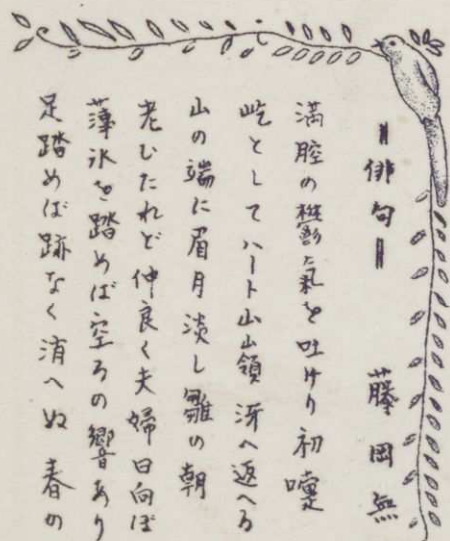 ＝俳句＝
藤岡無
満腔の鬱氣を吐けり初嚏
屹としてハート山山嶺冴へ返へる
山の端に眉月淡し雛の朝
老むたれど仲良く夫婦日向ぼ
薄氷を踏めば空ろの響あり
足踏めば跡なく消へぬ春の